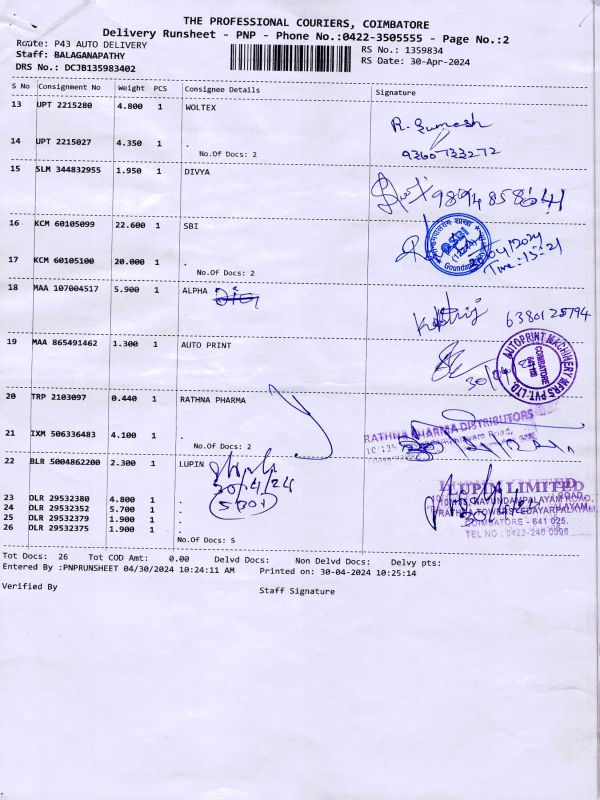 THE PROFESSIONAL COURIERS, COIMBATORE
Delivery Runsheet - PNP - Phone No.:0422-3505555 - Page No.:2
Route: P43 AUTO DELIVERY
RS No.: 1359834
Staff: BALAGANAPATHY
RS Date: 30-Apr-2024
DRS No.: DCJB135983402
S No Consignment No Weight PCS Consignee Details Signature
13 UPT 2215280 4.800 1 WOLTEX
R. Sumesh
14 UPT 2215027 4.350 1 .
No.Of Docs: 2
9360733272
15 SLM 344832955 1.950 1 DIVYA
9894858641
16 KCM 60105099 22.600 1 SBI
17 KCM 60105100 20.000 1 .
No.Of Docs: 2
Time: 15:21
18 MAA 107004517 5.900 1 ALPHA
6380125794
19 MAA 865491462 1.300 1 AUTO PRINT
AUTOPRINT MACHINERY MFRS PVT. LTD.
COIMBATORE
20 TRP 2103097 0.440 1 RATHNA PHARMA
RATHNA PHARMA DISTRIBUTORS
21 IXM 506336483 4.100 1 .
No.Of Docs: 2
22 BLR 5004862200 2.300 1 LUPIN
30/4/24
LUPIN LIMITED
23 DLR 29532380 4.800 1 .
24 DLR 29532352 5.700 1 .
25 DLR 29532379 1.900 1 .
26 DLR 29532375 1.900 1 .
COIMBATORE - 641 025.
No.Of Docs: 5
Tot Docs: 26 Tot COD Amt: 0.00 Delvd Docs: Non Delvd Docs: Delvy pts:
Entered By :PNPRUNSHEET 04/30/2024 10:24:11 AM Printed on: 30-04-2024 10:25:14
Verified By Staff Signature